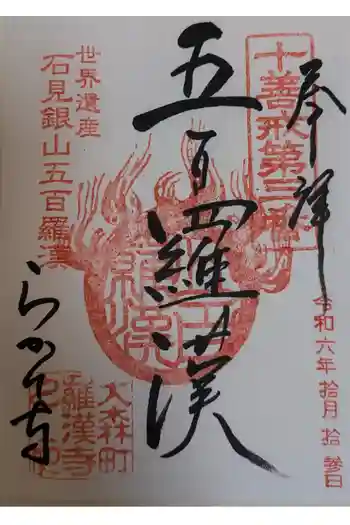 奉拝
十善戒第三番
令和六年拾月拾参日
五百羅漢
世界遺産
石見銀山五百羅漢
羅漢
らかん寺
大森町
羅漢寺